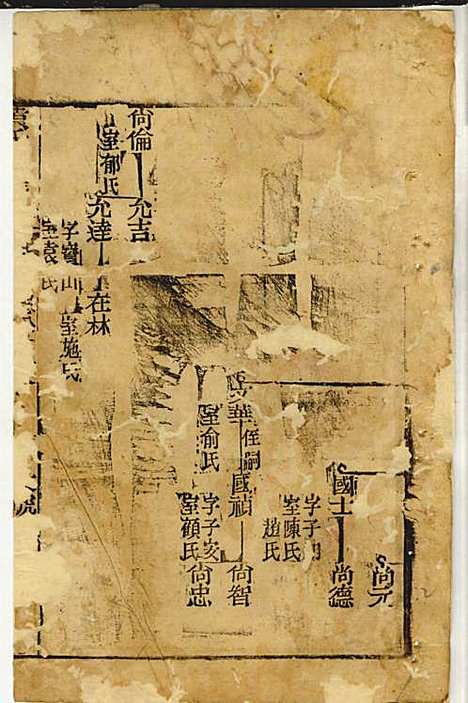 尙元
國士
字子
室陳氏
趙氏
尙德
華
侄嗣
國禎
室俞氏
字子亥
室顧氏
尙智
尙忠
尙倫
室郁氏
允吉
允達
在林
字寶山
室施氏
室袁氏